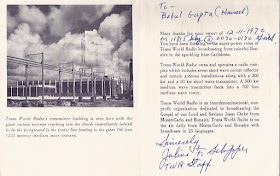 Trans World Radio's transmitter building is seen here with the
giant curtain antennas reaching into the clouds immediately behind
it. In the foreground is the feeder line leading to the giant 760 foot
(232 meters) medium wave antenna.
To -
Babul Gupta (Hansel)
Many thanks for your report of 12-11-1970
on 11815 0030-0130
You have been listening to the super power voice of
Trans World Radio broadcasting from colorful Bonaire
in the sparkling blue Caribbean.
Trans World Radio owns and operates a radio complex
which includes seven short wave center reflector
curtain antenna installations along with a 260
kw and a 50 kw short wave transmitter for
medium wave a 500 kw transmitter and directional
antenna system.
Trans World Radio is an interdenominational, non-profit
organization dedicated to the broadcasting of the Gospel
of our Lord and Saviour Jesus Christ from
Monte-Carlo and Bonaire. Trans World Radio is on
the air daily from Monte-Carlo and Bonaire with
broadcasts in 25 languages.
Sincerely
TWR Staff